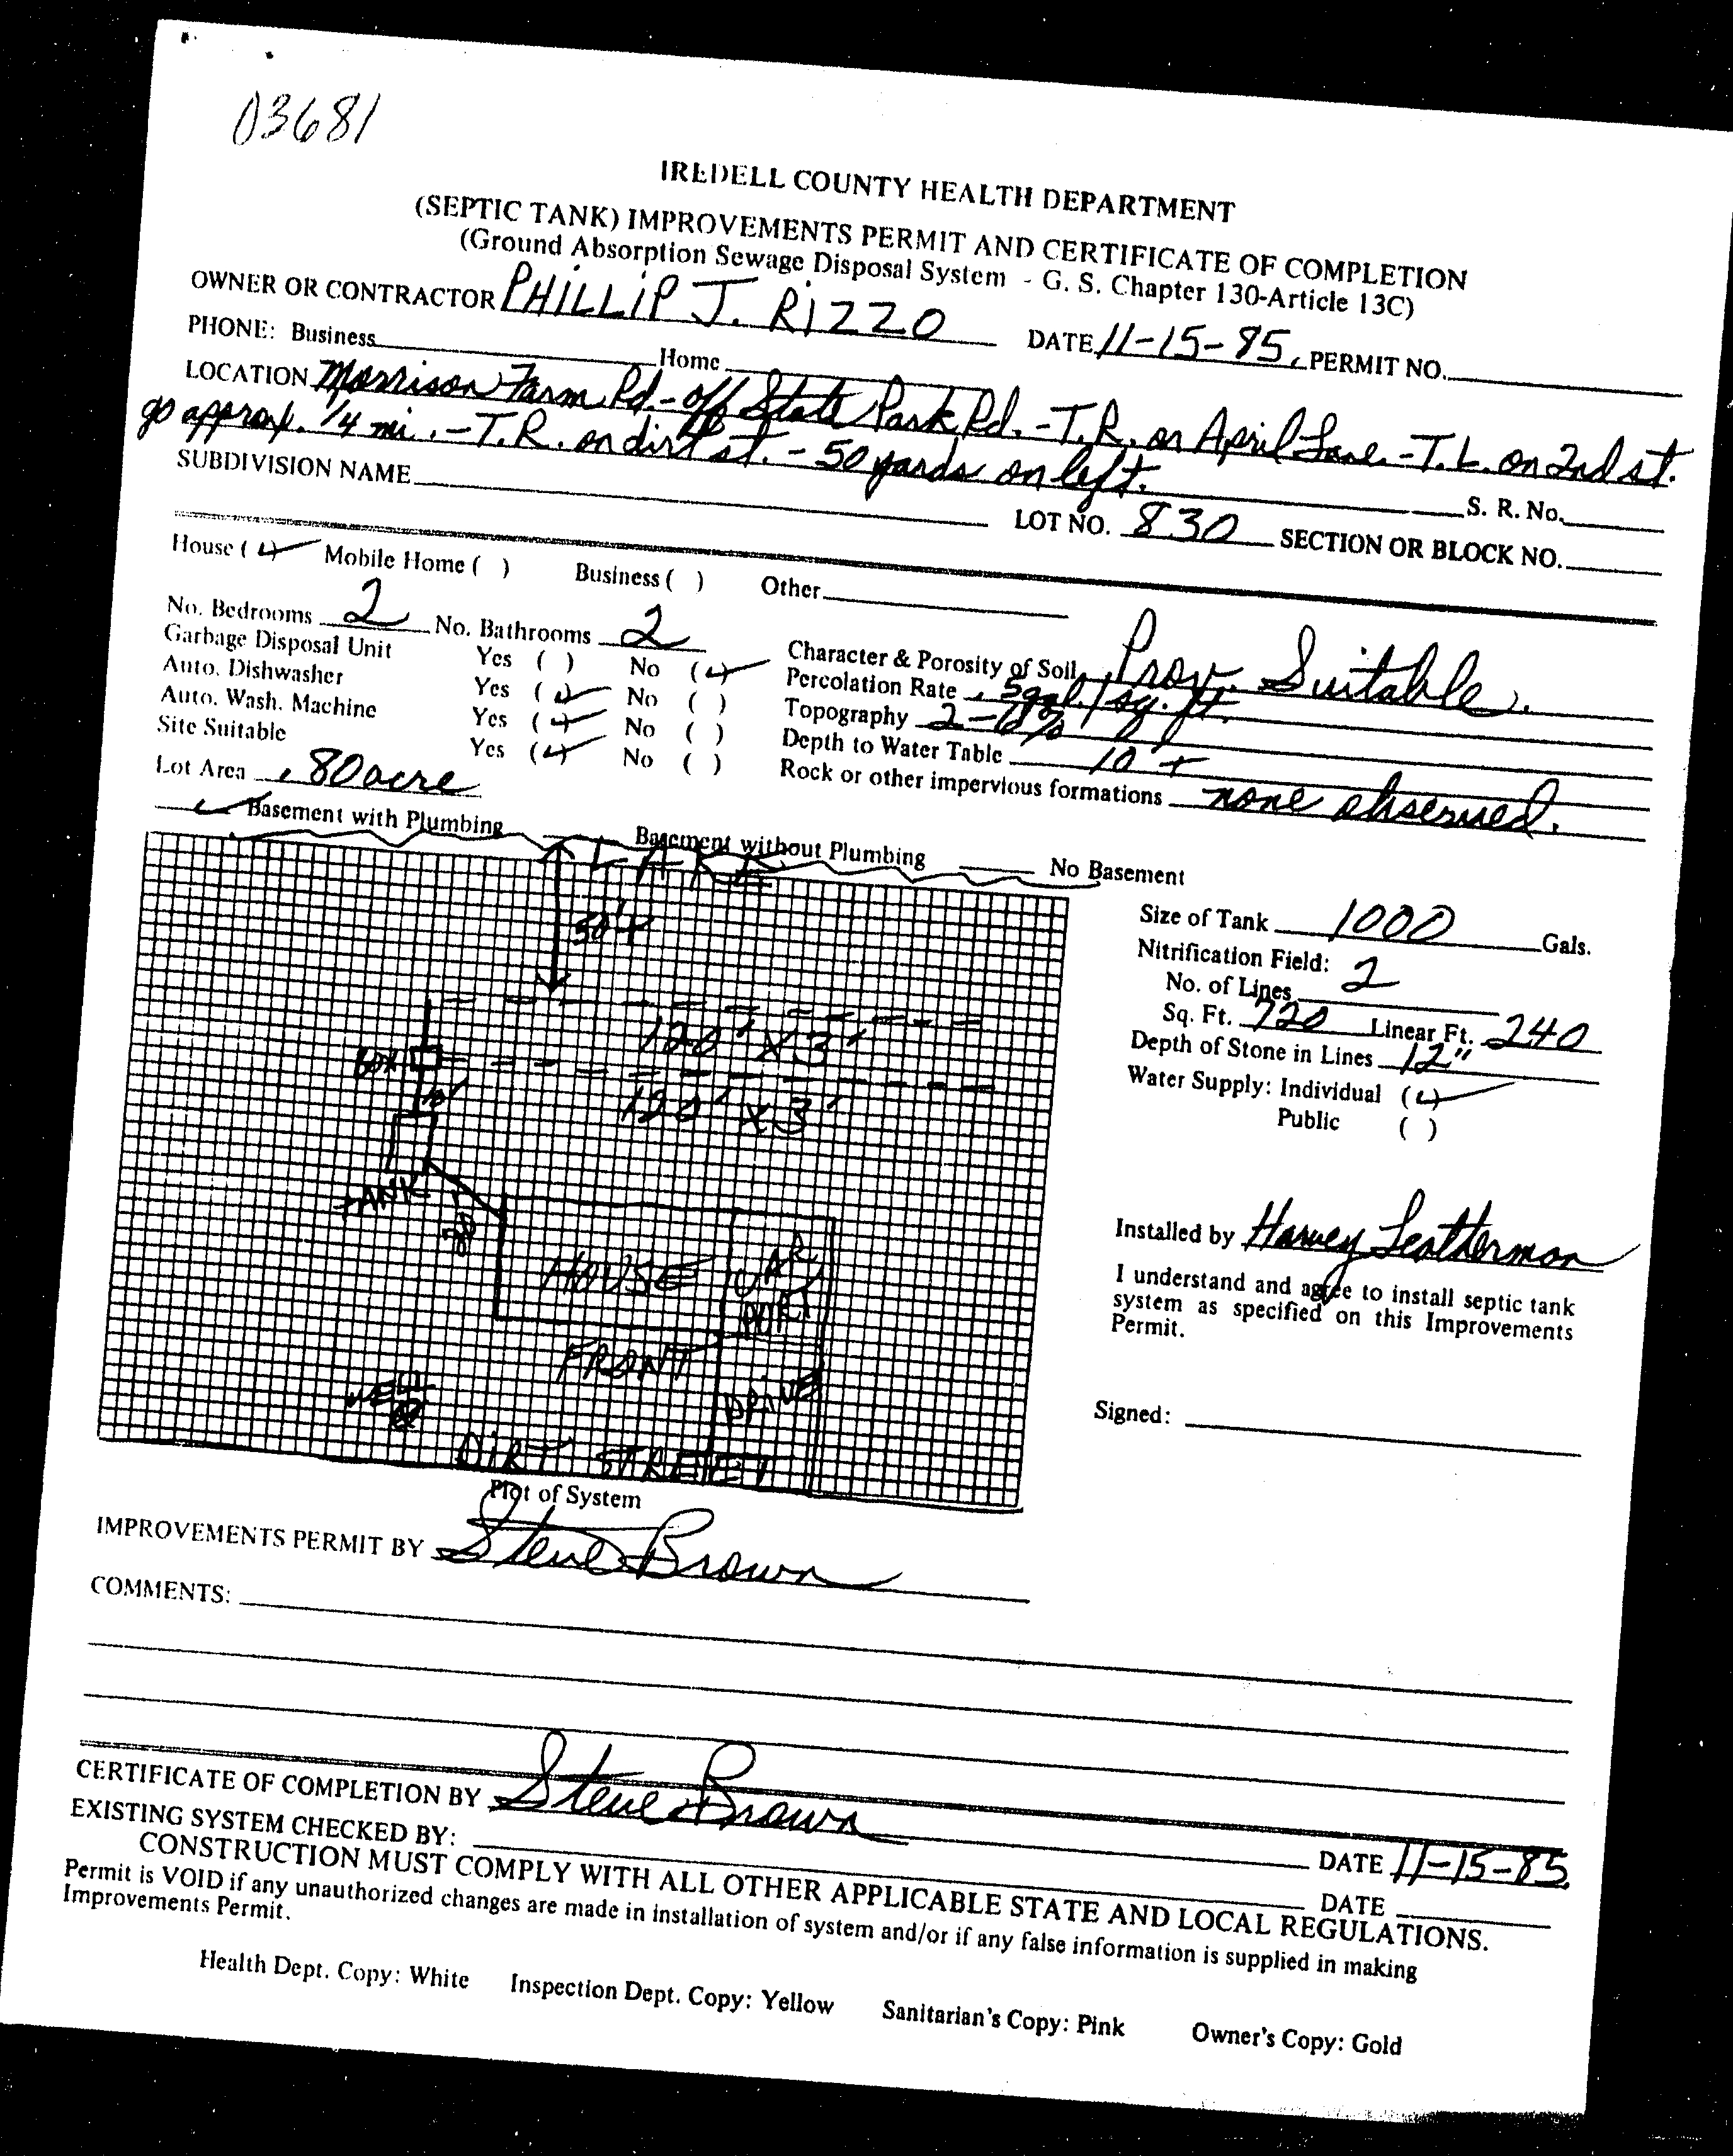 03681
IREDELL COUNTY HEALTH DEPARTMENT
(SEPTIC TANK) IMPROVEMENTS PERMIT AND CERTIFICATE OF COMPLETION
(Ground Absorption Sewage Disposal System - G. S. Chapter 130-Article 13C)
OWNER OR CONTRACTOR PHILLIP J. RIZZO DATE 11-15-85, PERMIT NO.
PHONE: Business Home
LOCATION Morrison Farm Rd.-off State Park Rd.-T.R. on April Lane.-T.L. on 2nd st.
go approx. 1/4 mi. -T.R. on dirt st. - 50 yards on left. S. R. No.
SUBDIVISION NAME LOT NO. 830 SECTION OR BLOCK NO.
House (✓) Mobile Home ( ) Business ( ) Other
No. Bedrooms 2 No. Bathrooms 2
Garbage Disposal Unit Yes ( ) No (✓)
Auto. Dishwasher Yes (✓) No ( )
Auto. Wash. Machine Yes (✓) No ( )
Site Suitable Yes (✓) No ( )
Lot Area .80 acre
Character & Porosity of Soil Prov. Suitable.
Percolation Rate .5gal./sq. ft.
Topography 2-6%
Depth to Water Table 10'+
Rock or other impervious formations none observed.
✓ Basement with Plumbing Basement without Plumbing No Basement
LAKE
50'+
120' x 3'
BOX
10'
120' x 3'
TANK
HOUSE
CAR
PORT
FRONT
WELL
DRIVE
DIRT STREET
Plot of System
Size of Tank 1000 Gals.
Nitrification Field:
No. of Lines 2
Sq. Ft. 720 Linear Ft. 240
Depth of Stone in Lines 12"
Water Supply: Individual (✓)
Public ( )
Installed by Harvey Leatherman
I understand and agree to install septic tank
system as specified on this Improvements
Permit.
Signed:
IMPROVEMENTS PERMIT BY Steve Brown
COMMENTS:
CERTIFICATE OF COMPLETION BY Steve Brown DATE 11-15-85.
EXISTING SYSTEM CHECKED BY: DATE
CONSTRUCTION MUST COMPLY WITH ALL OTHER APPLICABLE STATE AND LOCAL REGULATIONS.
Permit is VOID if any unauthorized changes are made in installation of system and/or if any false information is supplied in making
Improvements Permit.
Health Dept. Copy: White Inspection Dept. Copy: Yellow Sanitarian's Copy: Pink Owner's Copy: Gold